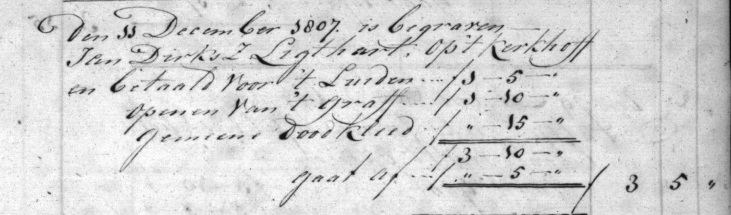 Den 11 December 1807 is begraven
Jan Dirks Z Ligthart, op't kerkhoff
en betaald voor 't Luiden --- ƒ 1 — 5 — "
openen van 't graff --- ƒ 1 — 10 — "
gemeene doodkleed - ƒ " — 15 — "
ƒ 3 — 10 — "
gaat af --- ƒ " — 5 — " ƒ 3 5 "